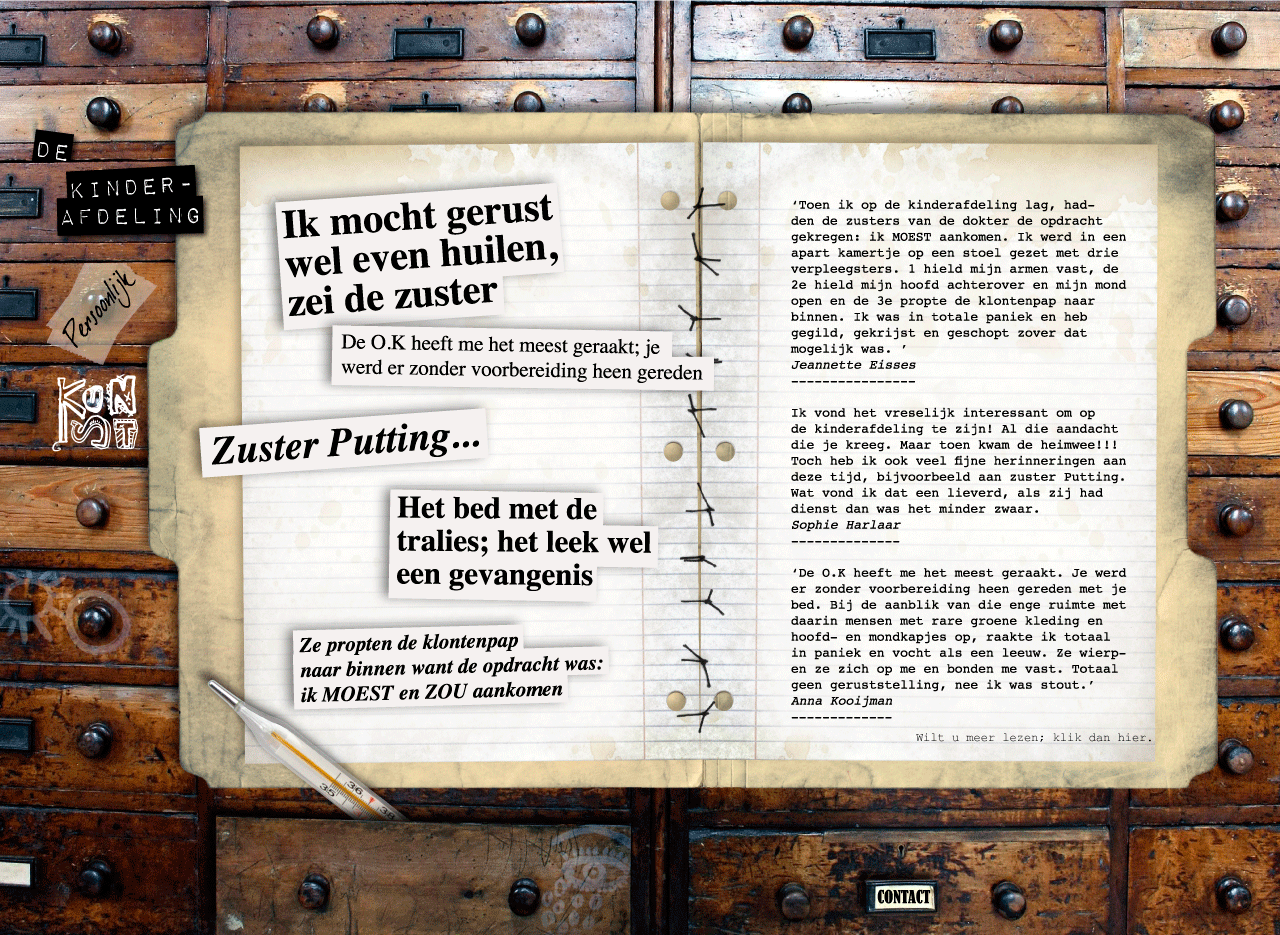 DE
KINDER-
AFDELING
Persoonlijk
KONST
Ik mocht gerust
wel even huilen,
zei de zuster
De O.K heeft me het meest geraakt; je
werd er zonder voorbereiding heen gereden
Zuster Putting...
Het bed met de
tralies; het leek wel
een gevangenis
Ze propten de klontenpap
naar binnen want de opdracht was:
ik MOEST en ZOU aankomen
35 36 38
‘Toen ik op de kinderafdeling lag, had-
den de zusters van de dokter de opdracht
gekregen: ik MOEST aankomen. Ik werd in een
apart kamertje op een stoel gezet met drie
verpleegsters. 1 hield mijn armen vast, de
2e hield mijn hoofd achterover en mijn mond
open en de 3e propte de klontenpap naar
binnen. Ik was in totale paniek en heb
gegild, gekrijst en geschopt zover dat
mogelijk was. ’
Jeannette Eisses
----------------
Ik vond het vreselijk interessant om op
de kinderafdeling te zijn! Al die aandacht
die je kreeg. Maar toen kwam de heimwee!!!
Toch heb ik ook veel fijne herinneringen aan
deze tijd, bijvoorbeeld aan zuster Putting.
Wat vond ik dat een lieverd, als zij had
dienst dan was het minder zwaar.
Sophie Harlaar
--------------
‘De O.K heeft me het meest geraakt. Je werd
er zonder voorbereiding heen gereden met je
bed. Bij de aanblik van die enge ruimte met
daarin mensen met rare groene kleding en
hoofd- en mondkapjes op, raakte ik totaal
in paniek en vocht als een leeuw. Ze wierp-
en ze zich op me en bonden me vast. Totaal
geen geruststelling, nee ik was stout.’
Anna Kooijman
-------------
Wilt u meer lezen; klik dan hier.
CONTACT